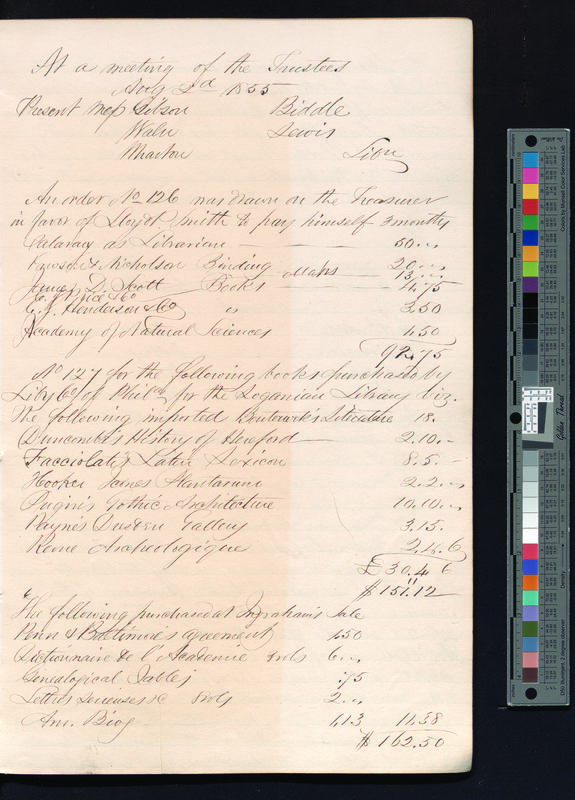 At a meeting of the Trustees
Aug 2d 1855
Present Mess Gibson Biddle
Waln Lewis
Wharton Libn
An order No 126 was drawn on the Treasurer
in favor of Lloyd P Smith to pay himself 3 months
Salary as Librarian 50
Pawson & Nicholson Binding 20
James D. Scott Maps 13
Books 4.75
C. J. Henderson & Co " 3.50
Academy of Natural Sciences 1.50
92.75
No 127 for the following books purchased by
Liby Co of Phila for the Loganian Library viz.
The following imported Bouterwek's Literature 18
Duncombe's History of Hereford 2.10
Facciolati's Latin Lexicon 8.5
Hooker Icones Plantarum 2.2
Pugin's Gothic Architecture 10.10
Payne's Dresden Gallery 3.15
Revue Archeologique 2.4.6
£ 30.4 6
$ 151.12
The following purchased at Ingraham's Sale
Penn & Baltimore's agreement 1.50
Dictionnaire de l'Academie vols 6
Genealogical Tables .75
Lettres Serieuses &c 8 vols 2
Am. Biog 1.13 11.38
$ 162.50